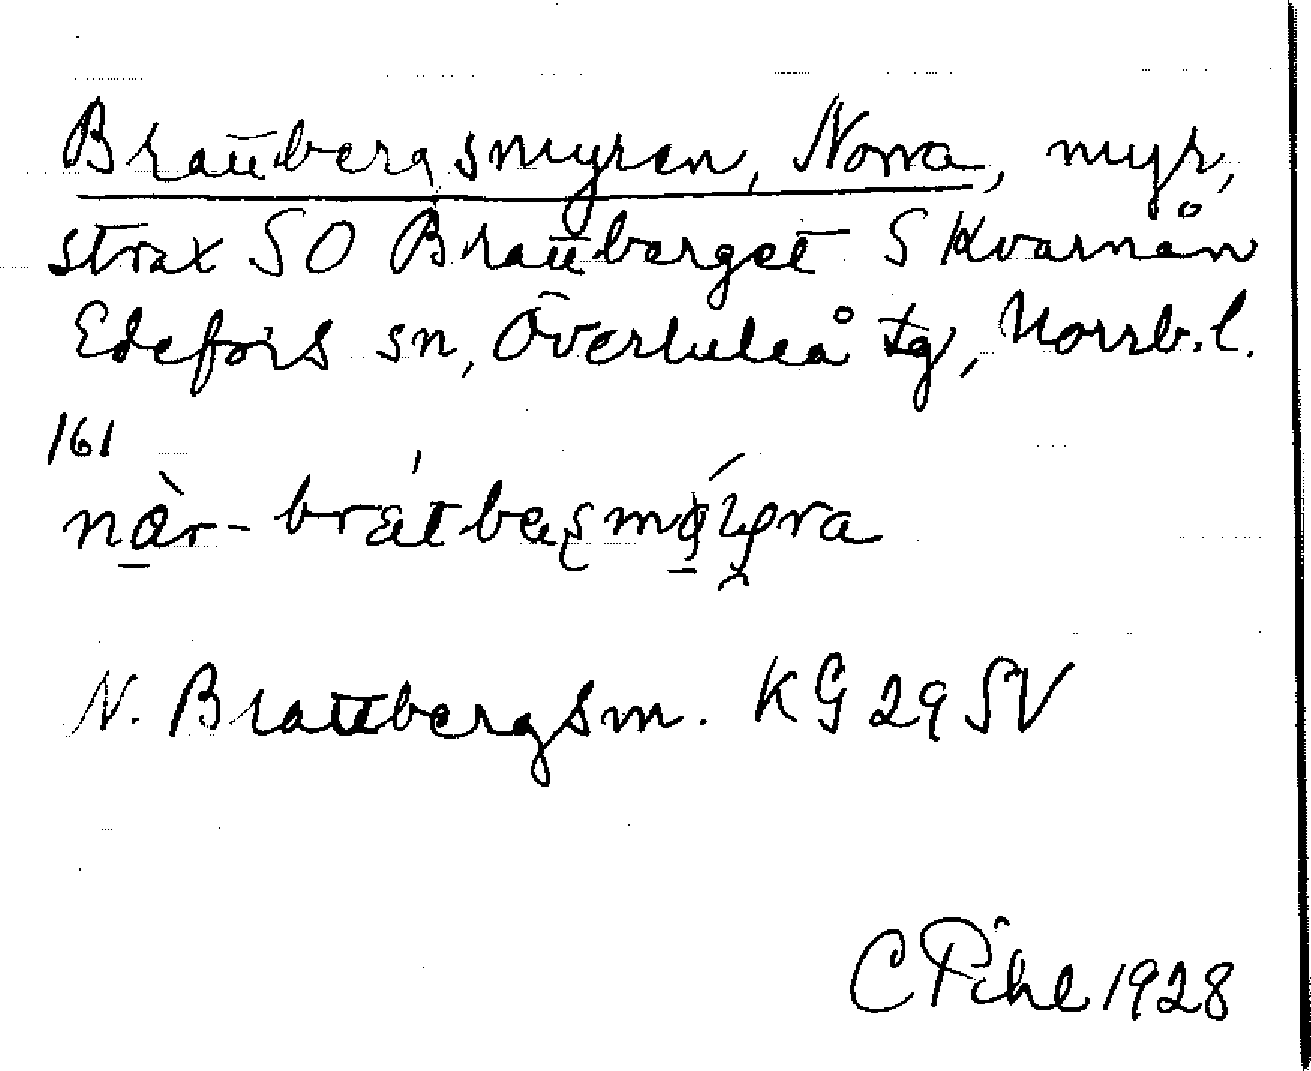 Brattbergsmyren, Norra, myr,
strax SO Brattberget S Kvarnån
Edefors sn, Överluleå tg, Norrb. l.
161
N. Brattbergsm. KG 29 SV
C Pihl 1928